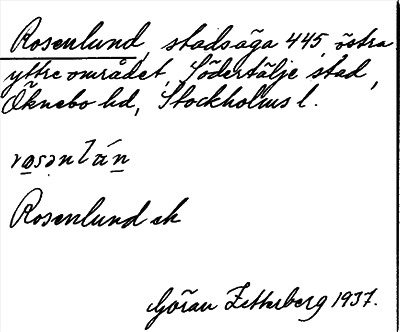 Rosenlund, stadsäga 445, östra
yttre området, Södertälje stad,
Öknebo hd, Stockholms l.
rosənlán
Rosenlund ek
Göran Zetterberg 1937.